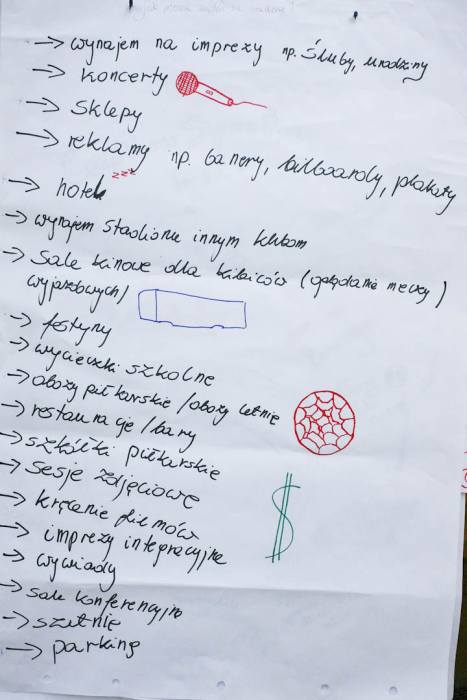 → wynajem na imprezy np. śluby, urodziny
→ koncerty
→ sklepy
→ reklamy np. banery, bilboardy, plakaty
→ hotel zzz
→ wynajem stadionu innym klubom
→ sale kinowe dla kibiców (oglądanie meczy)
wyjazdowych/
→ festyny
→ wycieczki szkolne
→ obozy piłkarskie/obozy letnie
→ restauracje/bary
→ szkółki piłkarskie
→ sesje zdjęciowe
→ kręcenie filmów
→ imprezy integracyjne
→ wywiady
→ sale konferencyjne
→ szatnie
→ parking
$